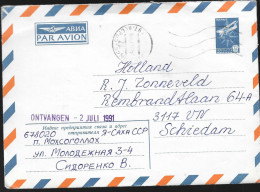 АВИА
PAR AVION
Holland
R. J. Zonneveld
Rembrandtlaan 64A
3117 VN
Schiedam
ONTVANGEN - 2 JULI 1991
Индекс предприятия связи и адрес
отправителя
678020 Я-САХА ССР
п. Мохсоголлох
ул. Молодежная 3-4
Сидоренко В.